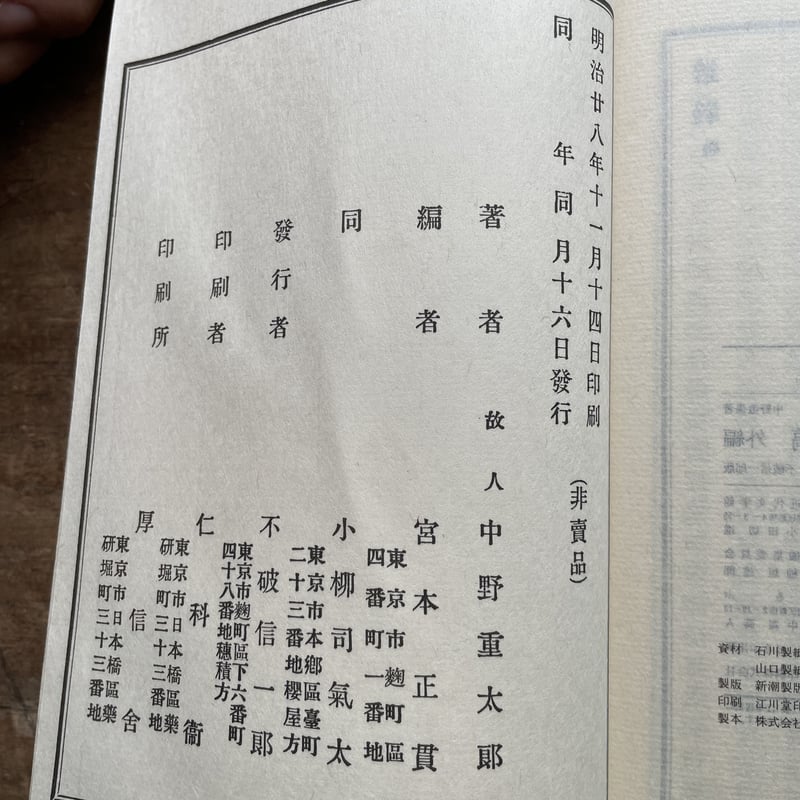 明治廿八年十一月十四日印刷
同年同月十六日發行
(非賣品)
著者 故人 中野重太郎
編者 宮本正貫
東京市麴町區
四番町一番地
同 小柳司氣太
東京市本鄉區臺町
二十三番地櫻屋方
發行者 不破信一郎
東京市麴町區下六番町
四十八番地穗積方
印刷者 仁科衞
東京市日本橋區藥
研堀町三十三番地
印刷所 厚信舍
東京市日本橋區藥
研堀町三十三番地
資材 石川製紙
山口製紙
製版 新潮製版
印刷 江川堂印
製本 株式会社